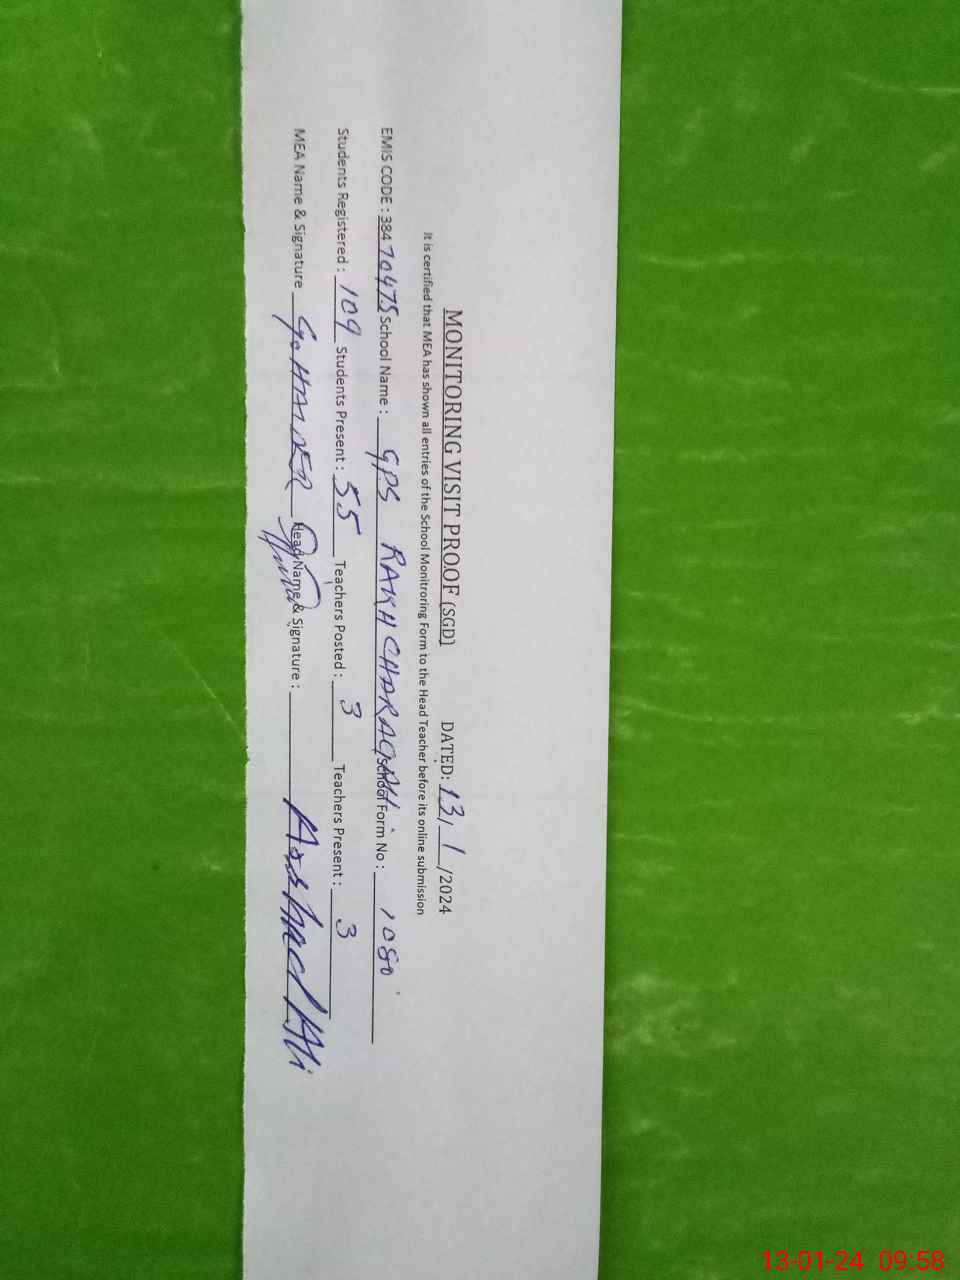 MONITORING VISIT PROOF (SGD) DATED: 13/1/2024
It is certified that MEA has shown all entries of the School Monitroring Form to the Head Teacher before its online submission
EMIS CODE : 38470475 School Name : GPS RAKH CHARAGAH School Form No : 1080
Students Registered : 109 Students Present : 55 Teachers Posted : 3 Teachers Present : 3
MEA Name & Signature G. HAIDER Head Name & Signature : Arshad Ali
13-01-24 09:58